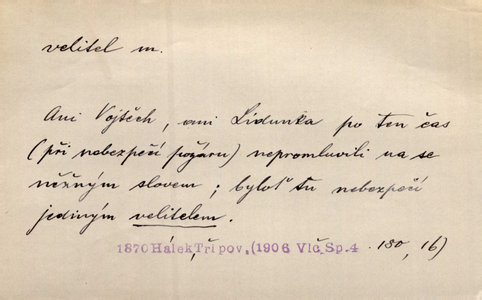 velitel m.
Ani Vojtěch, ani Lidunka po ten čas
(při nebezpečí požáru) nepromluvili na se
něžným slovem; byloť tu nebezpečí
jediným velitelem.
1870 Hálek Tři pov. (1906 Vlč. Sp. 4 180, 16)